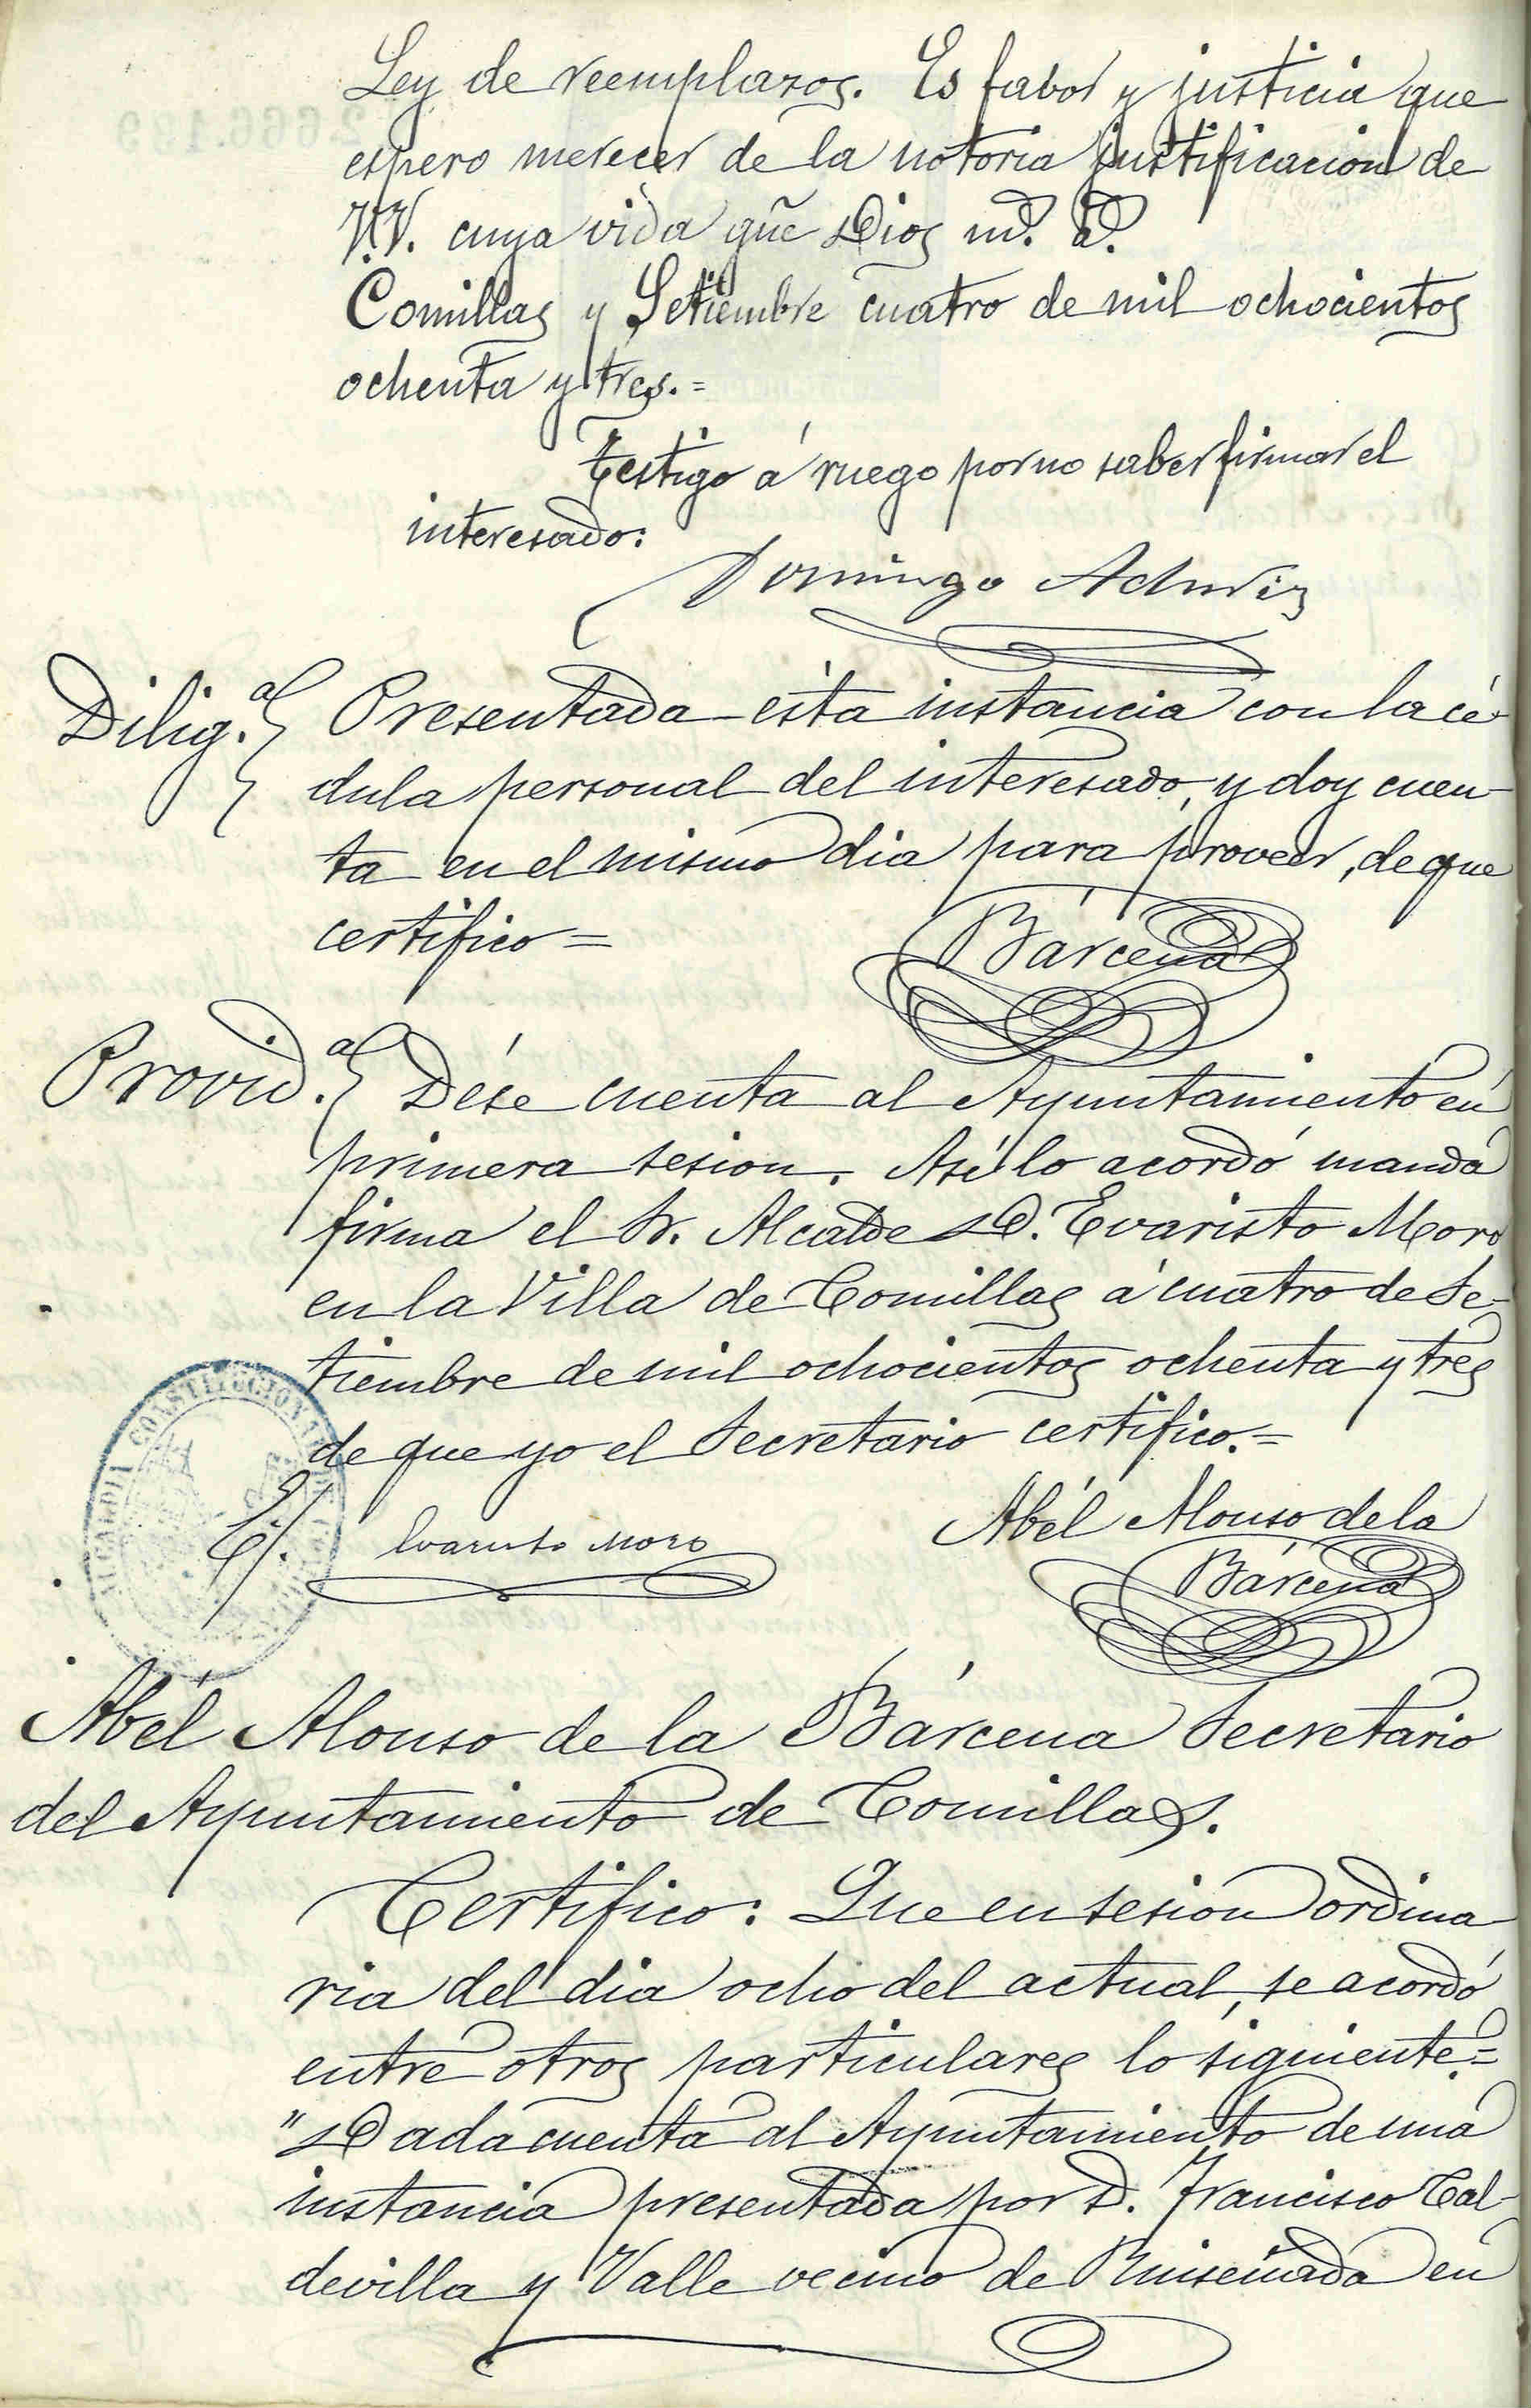 Ley de reemplazos. Es fabor y justicia que
espero merecer de la notoria justificacion de
V.V. cuya vida gũe Dios m.ˢ a.ˢ
Comillas y Setiembre cuatro de mil ochocientos
ochenta y tres.=
Testigo á ruego por no saber firmar el
interesado:
Domingo Aduriz
Dilig.ª Presentada esta instancia con la cé-
dula personal del interesado, y doy cuen-
ta en el mismo dia para proveer, de que
certifico=
Bárcena
Provid.ª Dése cuenta al Ayuntamiento en
primera sesion. Asi lo acordó manda
firma el Sr. Alcalde D. Evaristo Moro
en la Villa de Comillas á cuatro de Se-
tiembre de mil ochocientos ochenta y tres
de que yo el Secretario certifico.=
ALCALDIA CONSTITUCIONAL DE
Evaristo Moro
Abél Alonso de la
Bárcena
Abél Alonso de la Bárcena Secretario
del Ayuntamiento de Comillas.
Certifico: Que en sesion ordina
ria del dia ocho del actual, se acordó
entre otros particulares lo siguiente=
"Dada cuenta al Ayuntamiento de una
instancia presentada por D. Francisco Cal-
devilla y Valle vecino de Ruiseñada en